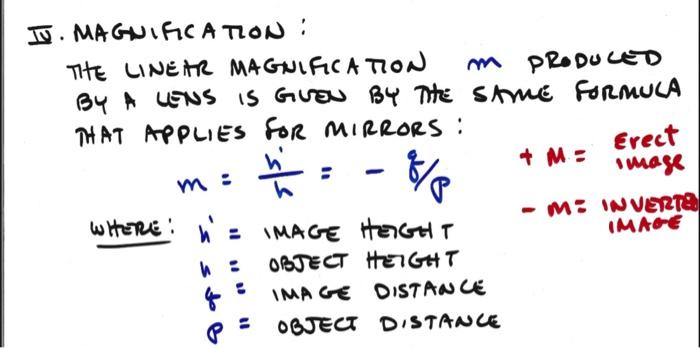 IV. MAGNIFICATION:
THE LINEAR MAGNIFICATION m PRODUCED
BY A LENS IS GIVEN BY THE SAME FORMULA
THAT APPLIES FOR MIRRORS:
m = h'/h = - q/p
+ M = Erect
image
- M = INVERTED
IMAGE
WHERE: h' = IMAGE HEIGHT
h = OBJECT HEIGHT
q = IMAGE DISTANCE
p = OBJECT DISTANCE